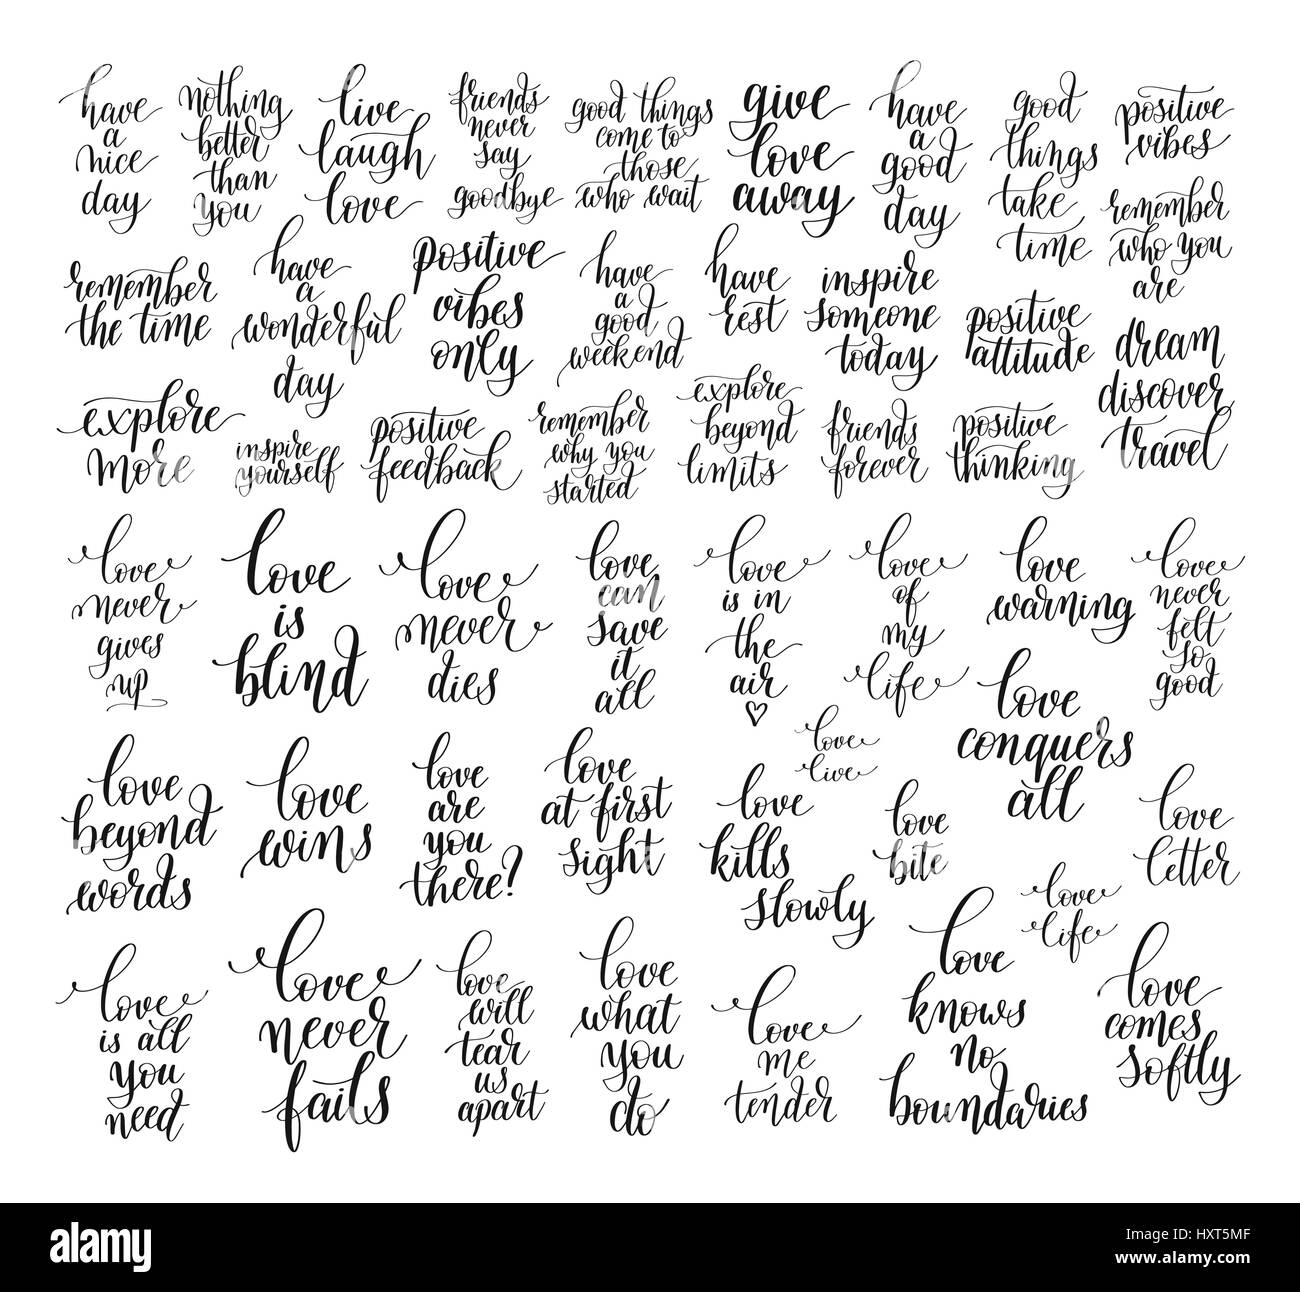 have
a
nice
day
nothing
better
than
you
live
laugh
love
friends
never
say
goodbye
good things
come to
those
who wait
give
love
away
have
a
good
day
good
things
take
time
positive
vibes
remember
who you
are
remember
the time
have
a
wonderful
day
positive
vibes
only
have
a
good
weekend
have
rest
inspire
someone
today
positive
attitude
dream
discover
travel
explore
more
inspire
yourself
positive
feedback
remember
why you
started
explore
beyond
limits
friends
forever
positive
thinking
love
never
gives
up
love
is
blind
love
never
dies
love
can
save
it
all
love
is in
the
air
love
of
my
life
love
warning
love
never
felt
so
good
love
live
love
conquers
all
love
beyond
words
love
wins
love
are
you
there?
love
at first
sight
love
kills
slowly
love
bite
love
letter
love
life
love
is all
you
need
love
never
fails
love
will
tear
us
apart
love
what
you
do
love
me
tender
love
knows
no
boundaries
love
comes
softly
alamy
Image ID: HXT5MF
www.alamy.com